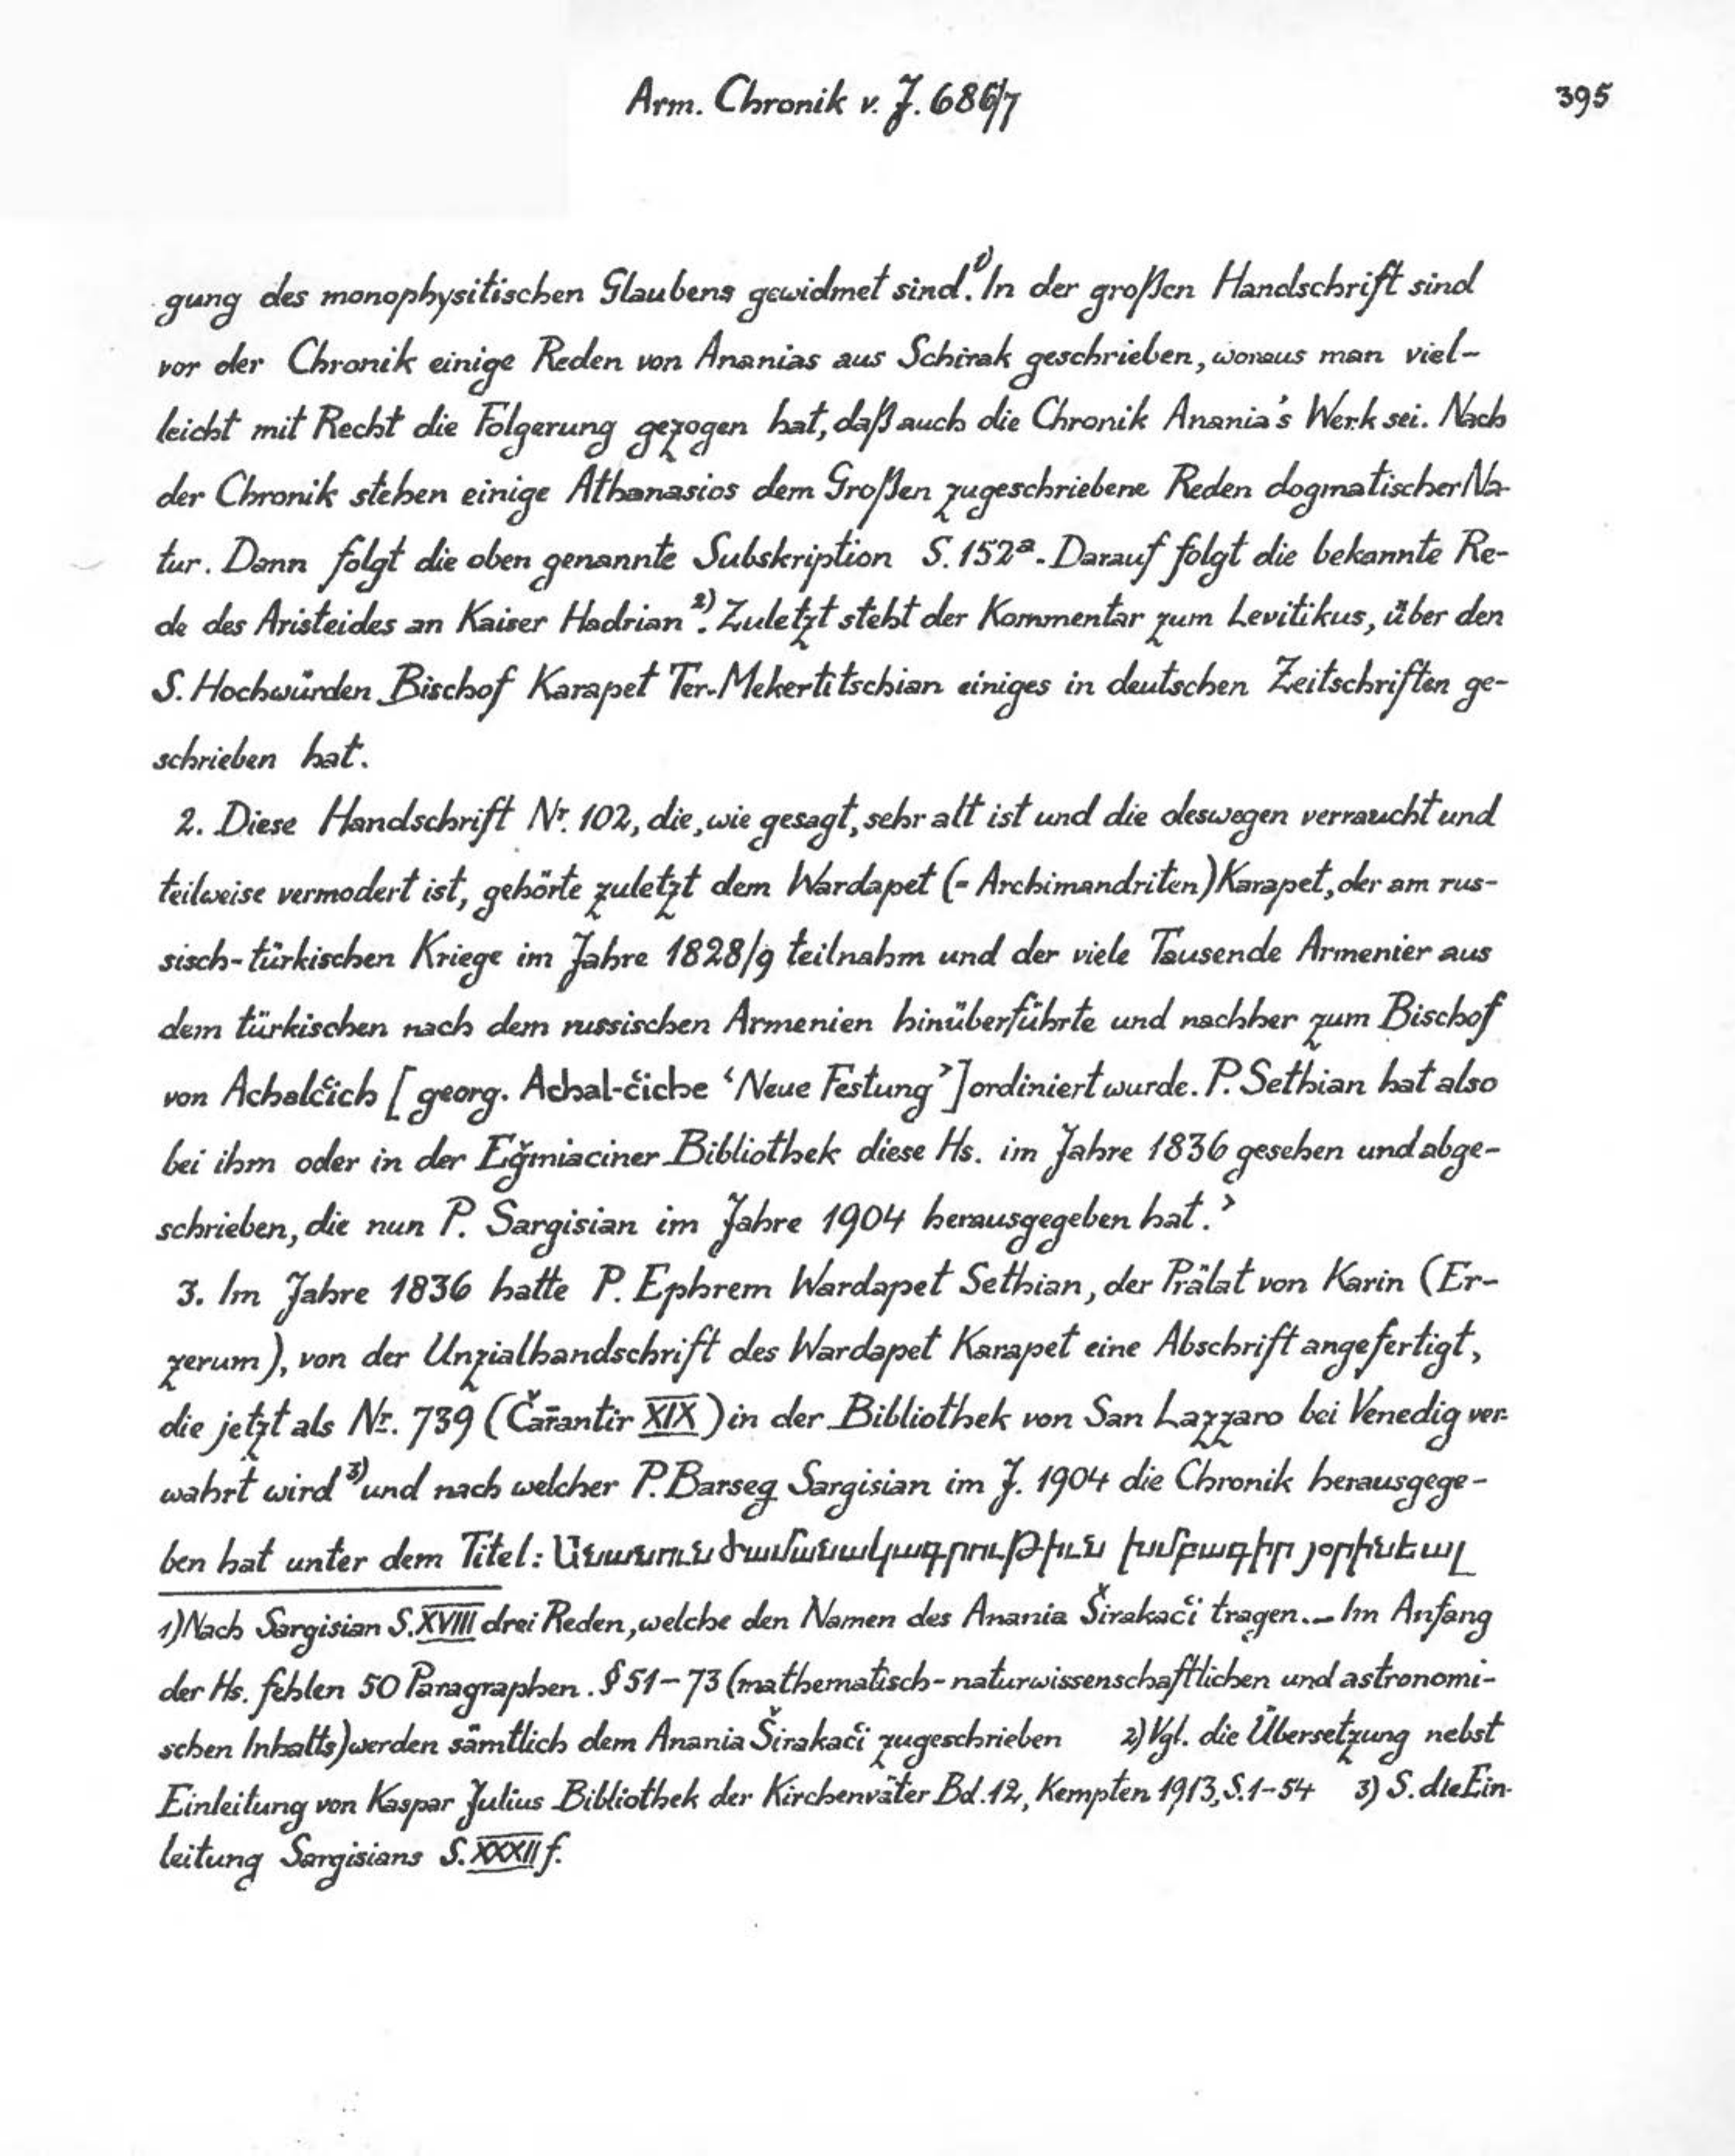 Arm. Chronik v. J. 686/7
395
gung des monophysitischen Glaubens gewidmet sind.¹⁾ In der großen Handschrift sind
vor der Chronik einige Reden von Ananias aus Schirak geschrieben, woraus man viel-
leicht mit Recht die Folgerung gezogen hat, daß auch die Chronik Anania's Werk sei. Nach
der Chronik stehen einige Athanasios dem Großen zugeschriebene Reden dogmatischer Na-
tur. Dann folgt die oben genannte Subskription S. 152ª. Darauf folgt die bekannte Re-
de des Aristeides an Kaiser Hadrian²⁾. Zuletzt steht der Kommentar zum Levitikus, über den
S. Hochwürden Bischof Karapet Ter-Mekertitschian einiges in deutschen Zeitschriften ge-
schrieben hat.
2. Diese Handschrift Nr. 102, die, wie gesagt, sehr alt ist und die deswegen verraucht und
teilweise vermodert ist, gehörte zuletzt dem Wardapet (= Archimandriten) Karapet, der am rus-
sisch-türkischen Kriege im Jahre 1828/9 teilnahm und der viele Tausende Armenier aus
dem türkischen nach dem russischen Armenien hinüberführte und nachher zum Bischof
von Achalčich [georg. Achal-čiche ‘Neue Festung’] ordiniert wurde. P. Sethian hat also
bei ihm oder in der Eǧmiaciner Bibliothek diese Hs. im Jahre 1836 gesehen und abge-
schrieben, die nun P. Sargisian im Jahre 1904 herausgegeben hat.’
3. Im Jahre 1836 hatte P. Ephrem Wardapet Sethian, der Prälat von Karin (Er-
zerum), von der Unzialhandschrift des Wardapet Karapet eine Abschrift angefertigt,
die jetzt als Nr. 739 (Čar̄antir XIX) in der Bibliothek von San Lazzaro bei Venedig ver-
wahrt wird³⁾ und nach welcher P. Barseg Sargisian im J. 1904 die Chronik herausgege-
ben hat unter dem Titel: Անանուն ժամանակագրութիւն խմբագիր յօրինեալ
1) Nach Sargisian S. XVIII drei Reden, welche den Namen des Anania Širakači tragen. – Im Anfang
der Hs. fehlen 50 Paragraphen. § 51–73 (mathematisch-naturwissenschaftlichen und astronomi-
schen Inhalts) werden sämtlich dem Anania Širakači zugeschrieben 2) Vgl. die Übersetzung nebst
Einleitung von Kaspar Julius Bibliothek der Kirchenväter Bd. 12, Kempten 1913, S. 1–54 3) S. die Ein-
leitung Sargisians S. XXXII f.